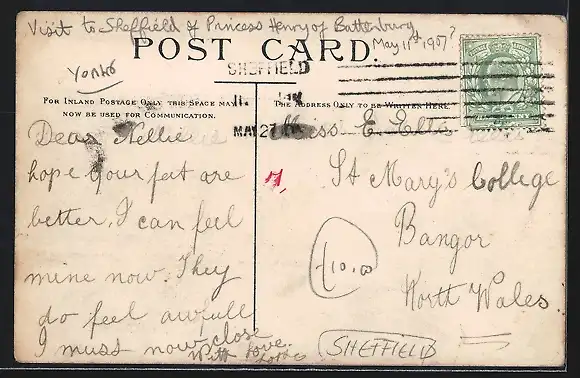 Visit to Sheffield of Princess Henry of Battenburg
May 11th 1907?
POST CARD.
Yorks
SHEFFIELD
MAY 27
FOR INLAND POSTAGE ONLY THIS SPACE MAY
NOW BE USED FOR COMMUNICATION.
THE ADDRESS ONLY TO BE WRITTEN HERE.
Dear Nellie
hope your feet are
better. I can feel
mine now. They
do feel awfull
I must now close
With love
Miss E Ellis
St Mary's College
Bangor
North Wales
£10.00
SHEFFIELD